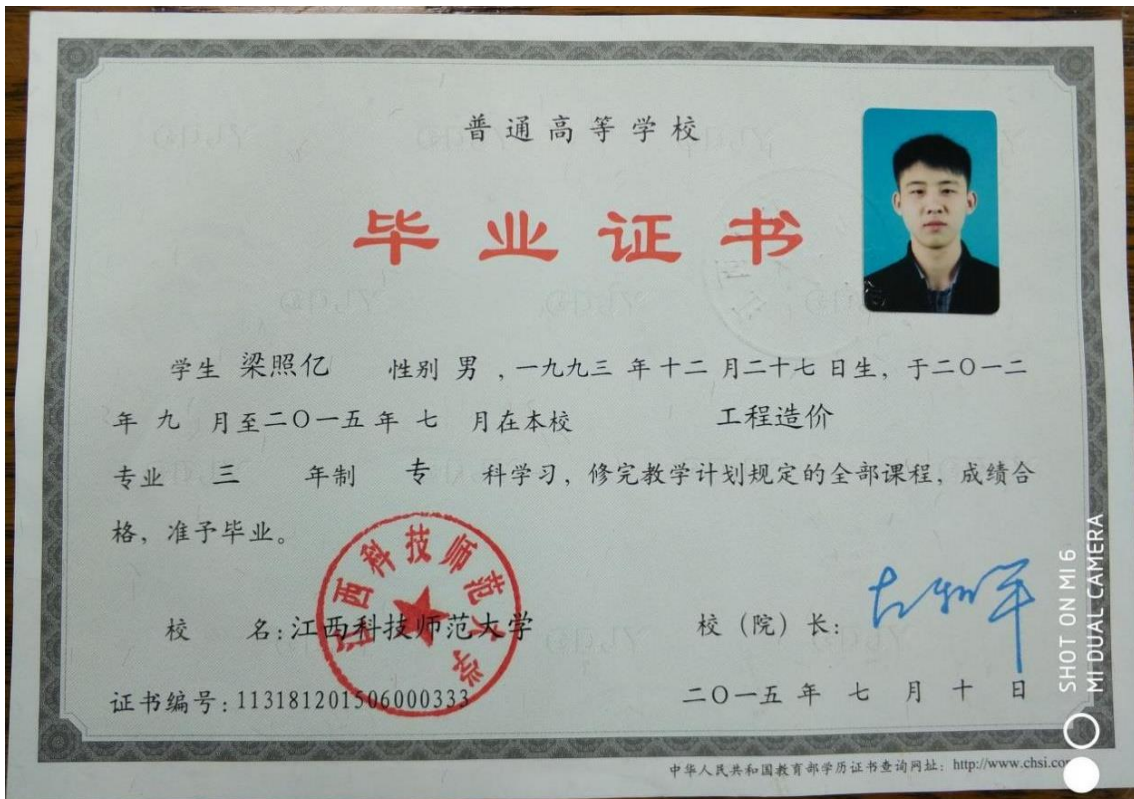 普通高等学校
毕业证书
学生 梁照亿 性别 男 ，一九九三 年 十二 月二十七 日生，于二〇一二
年 九 月至二〇一五 年 七 月在本校 工程造价
专业 三 年制 专 科学习，修完教学计划规定的全部课程，成绩合
格，准予毕业。
江西科技师范大学
校 名：江西科技师范大学
校（院）长：
证书编号：113181201506000333
二〇一五 年 七 月 十 日
中华人民共和国教育部学历证书查询网址：http://www.chsi.co
SHOT ON MI 6
MI DUAL CAMERA